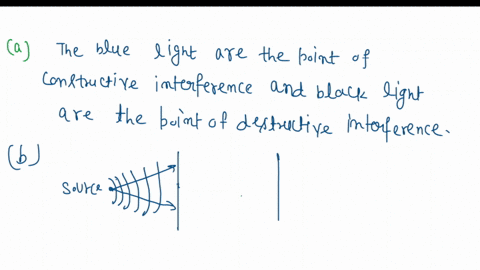 (a) The blue light are the point of
constructive interference and black light
are the point of destructive interference.
(b)
source